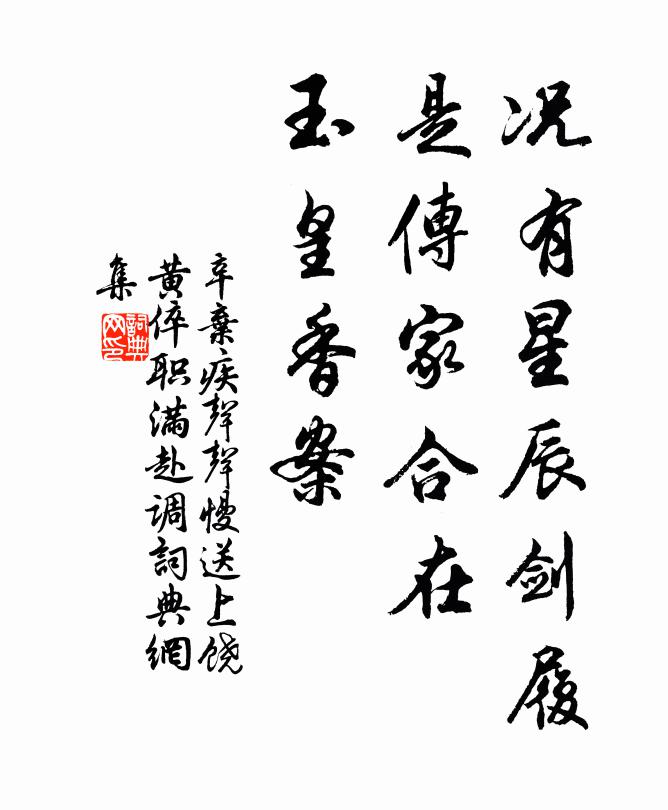 况有星辰剑履
是傳家合在
玉皇香案
辛棄疾聲聲慢送上饶
黄倅职满赴调詞典網
集
詞典
网印